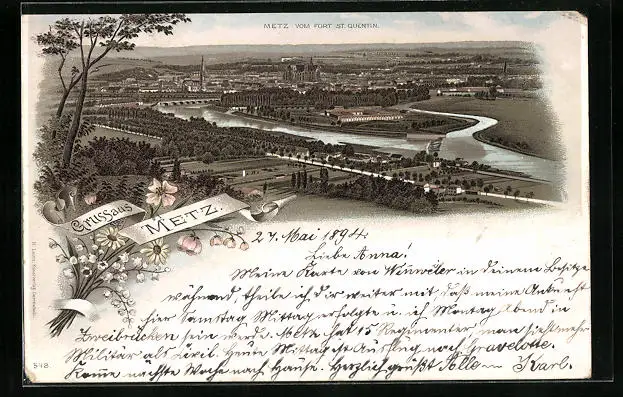 METZ VOM FORT ST. QUENTIN.
Gruss aus
METZ.
27. Mai 1894.
Liebe Anna!
Meine Karte von Winweiler in deinem Besitze
wähnend, theile ich dir weiter mit, daß meine Ankunft
hier Samstag Mittag erfolgte u. ich Montag Abend in
Zweibrücken sein werde. Metz hat 15 Regimenter, man sieht mehr
Militär als Civil. Heute Mittag ist Ausflug nach Gravelotte.
Komme nächste Woche nach Hause. Herzlich grüßt Karl.
518